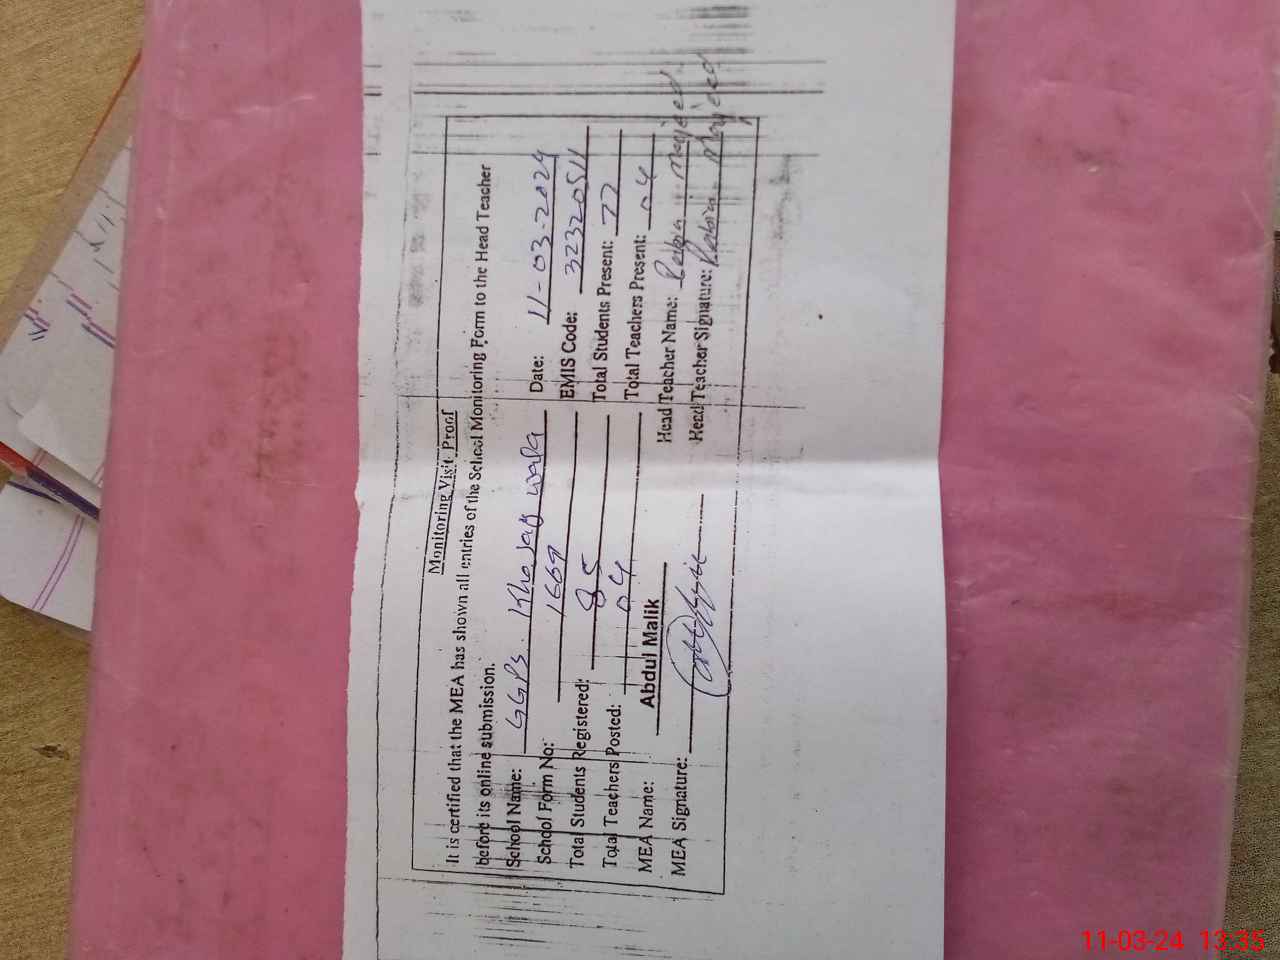 Monitoring Visit Proof
It is certified that the MEA has shown all entries of the School Monitoring Form to the Head Teacher
before its online submission.
School Name: GGPS. Khajay wala Date: 11-03-2024
School Form No: 1669 EMIS Code: 32320511
Total Students Registered: 85 Total Students Present: 77
Total Teachers Posted: 04 Total Teachers Present: 04
MEA Name: Abdul Malik Head Teacher Name: Rabia Majeed
MEA Signature: Head Teacher Signature: Rabia Majeed
11-03-24 13:35